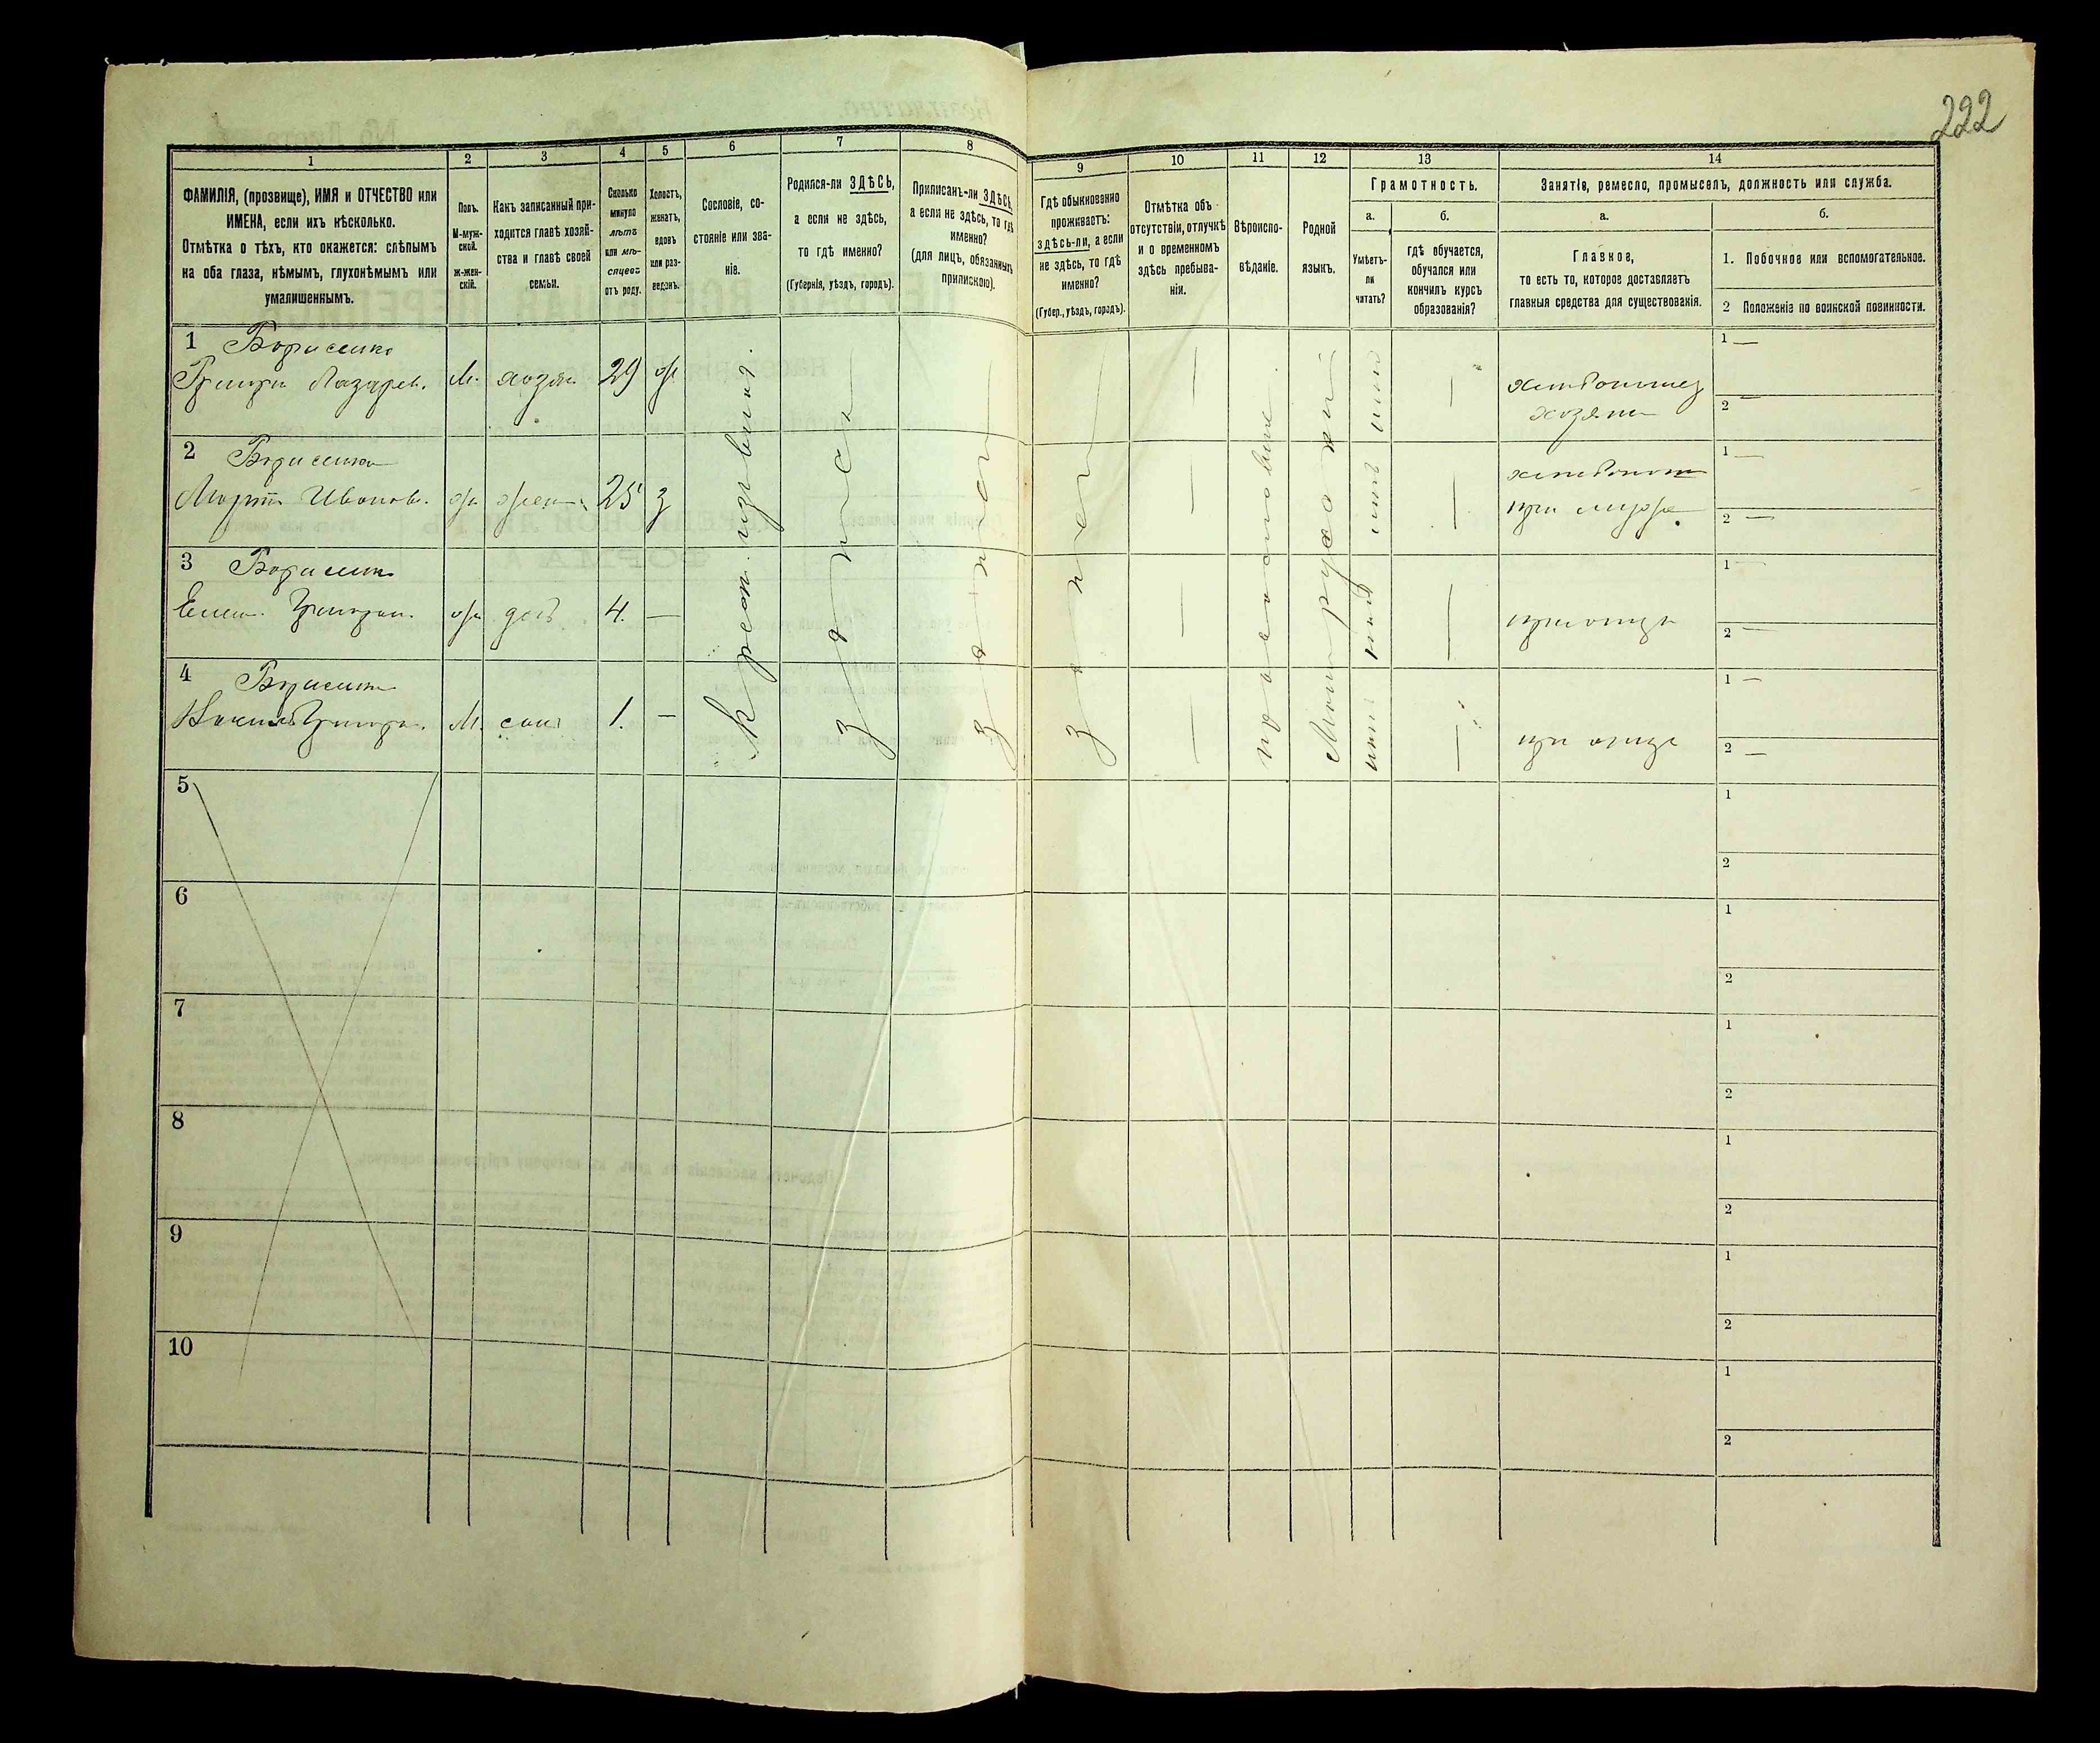 222
1
2
3
4
5
6
7
8
9
10
11
12
13
14
ФАМИЛІЯ, (прозвище), ИМЯ и ОТЧЕСТВО или
ИМЕНА, если ихъ нѣсколько.
Отмѣтка о тѣхъ, кто окажется: слѣпымъ
на оба глаза, нѣмымъ, глухонѣмымъ или
умалишеннымъ.
Полъ.
М-муж-
ской.
Ж-жен-
скій.
Какъ записанный при-
ходится главѣ хозяй-
ства и главѣ своей
семьи.
Сколько
минуло
лѣтъ
или мѣ-
сяцевъ
отъ роду.
Холостъ,
женатъ,
вдовъ
или раз-
веденъ.
Сословіе, со-
стояніе или зва-
ніе.
Родился-ли ЗДѢСЬ,
а если не здѣсь,
то гдѣ именно?
(Губернія, уѣздъ, городъ).
Приписанъ-ли ЗДѢСЬ,
а если не здѣсь, то гдѣ
именно?
(для лицъ, обязанныхъ
припискою).
Гдѣ обыкновенно
проживаетъ:
здѣсь-ли, а если
не здѣсь, то гдѣ
именно?
(Губер., уѣздъ, городъ).
Отмѣтка объ
отсутствіи, отлучкѣ
и о временномъ
здѣсь пребыва-
ніи.
Вѣроиспо-
вѣданіе.
Родной
языкъ.
Грамотность.
а.
б.
Умѣетъ-
ли
читать?
гдѣ обучается,
обучался или
кончилъ курсъ
образованія?
Занятіе, ремесло, промыселъ, должность или служба.
а.
б.
Главное,
то есть то, которое доставляетъ
главныя средства для существованія.
1. Побочное или вспомогательное.
2 Положеніе по воинской повинности.
1 Борисенко
Григори Лазарев. М. хозяи 29 ж
хозяин
1 —
2 —
2 Борисенко
Иванов. ж жен 25 з
при муже
1 —
2 —
3 Борисенко
Елен. Григори. ж доч 4. —
при отце
1 —
2 —
4 Борисенко
Григори. М. сын 1. —
при отце
1 —
2 —
5
1
2
6
1
2
7
1
2
8
1
2
9
1
2
10
1
2